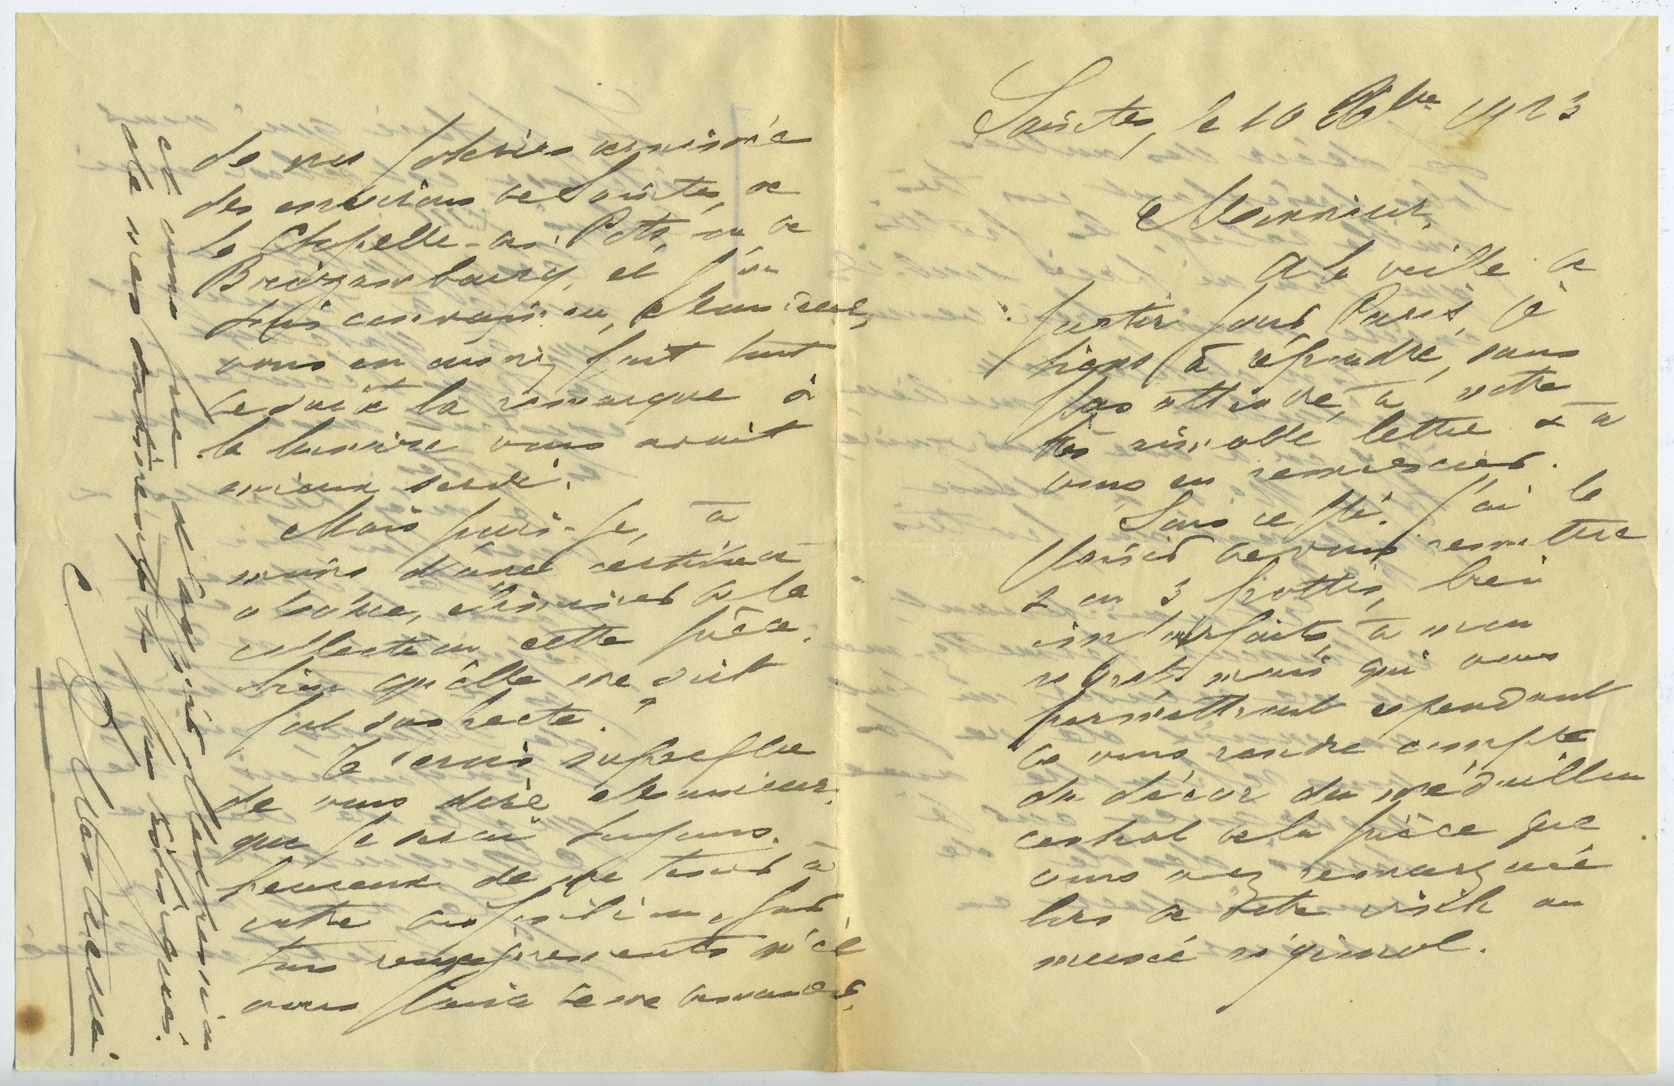 Saintes, le 10 8bre 1923
Monsieur,
A la veille de
partir pour Paris, je
tiens à répondre, sans
plus attendre, à votre
très aimable lettre & à
vous en remercier.
Sous ce pli, j'ai le
plaisir de vous remettre
2 ou 3 frottis, bien
imparfaits, à mon
regret, mais qui vous
permettront cependant
de vous rendre compte
du décor du médaillon
central de la pièce que
vous avez remarquée
lors de votre visite au
musée régional.
de nos poteries
des environs de Saintes, de
la Chapelle-des-Pots, ou de
Brizambourg, et j'en
suis convaincu, Monsieur,
vous en auriez fait tout
de suite la remarque si
la lumière vous avait
mieux servi.
Mais puis-je, à
moins d'une certitude
absolue, éliminer de la
collection cette pièce,
bien qu'elle me soit
fort suspecte ?
Je serais superflu
de vous dire, Monsieur,
que je serai toujours
heureux de me tenir à
votre disposition, pour
tous renseignements qu'il
vous plaira de me demander,
et vous prie d'agréer l'expression
de mes sentiments
C.